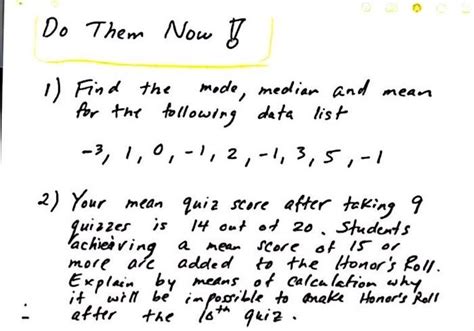 Do Them Now !
1) Find the mode, median and mean
for the following data list
-3, 1, 0, -1, 2, -1, 3, 5, -1
2) Your mean quiz score after taking 9
quizzes is 14 out of 20. Students
achieving a mean score of 15 or
more are added to the Honor's Roll.
Explain by means of calculation why
it will be impossible to make Honor's Roll
after the 10th quiz.